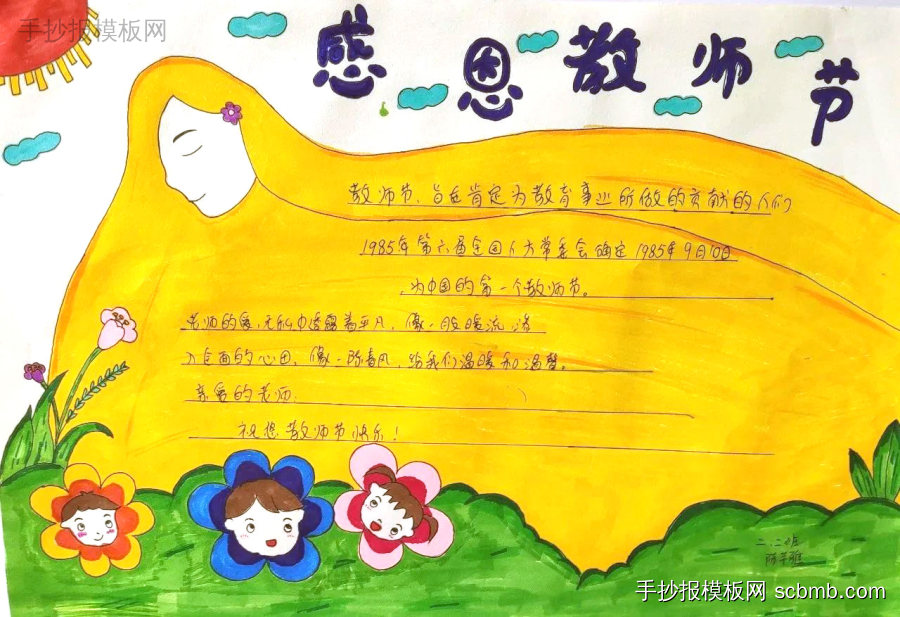 手抄报模板网
感恩教师节
教师节,旨在肯定为教育事业所做的贡献的人们
1985年第六届全国人大常委会确定1985年9月10日
为中国的第一个教师节。
老师的爱,无私中透露着平凡,像一股暖流,渗
入全面的心田,像一阵春风,给我们温暖和温馨。
亲爱的老师:
祝您教师节快乐!
二.二班
手抄报模板网 scbmb.com